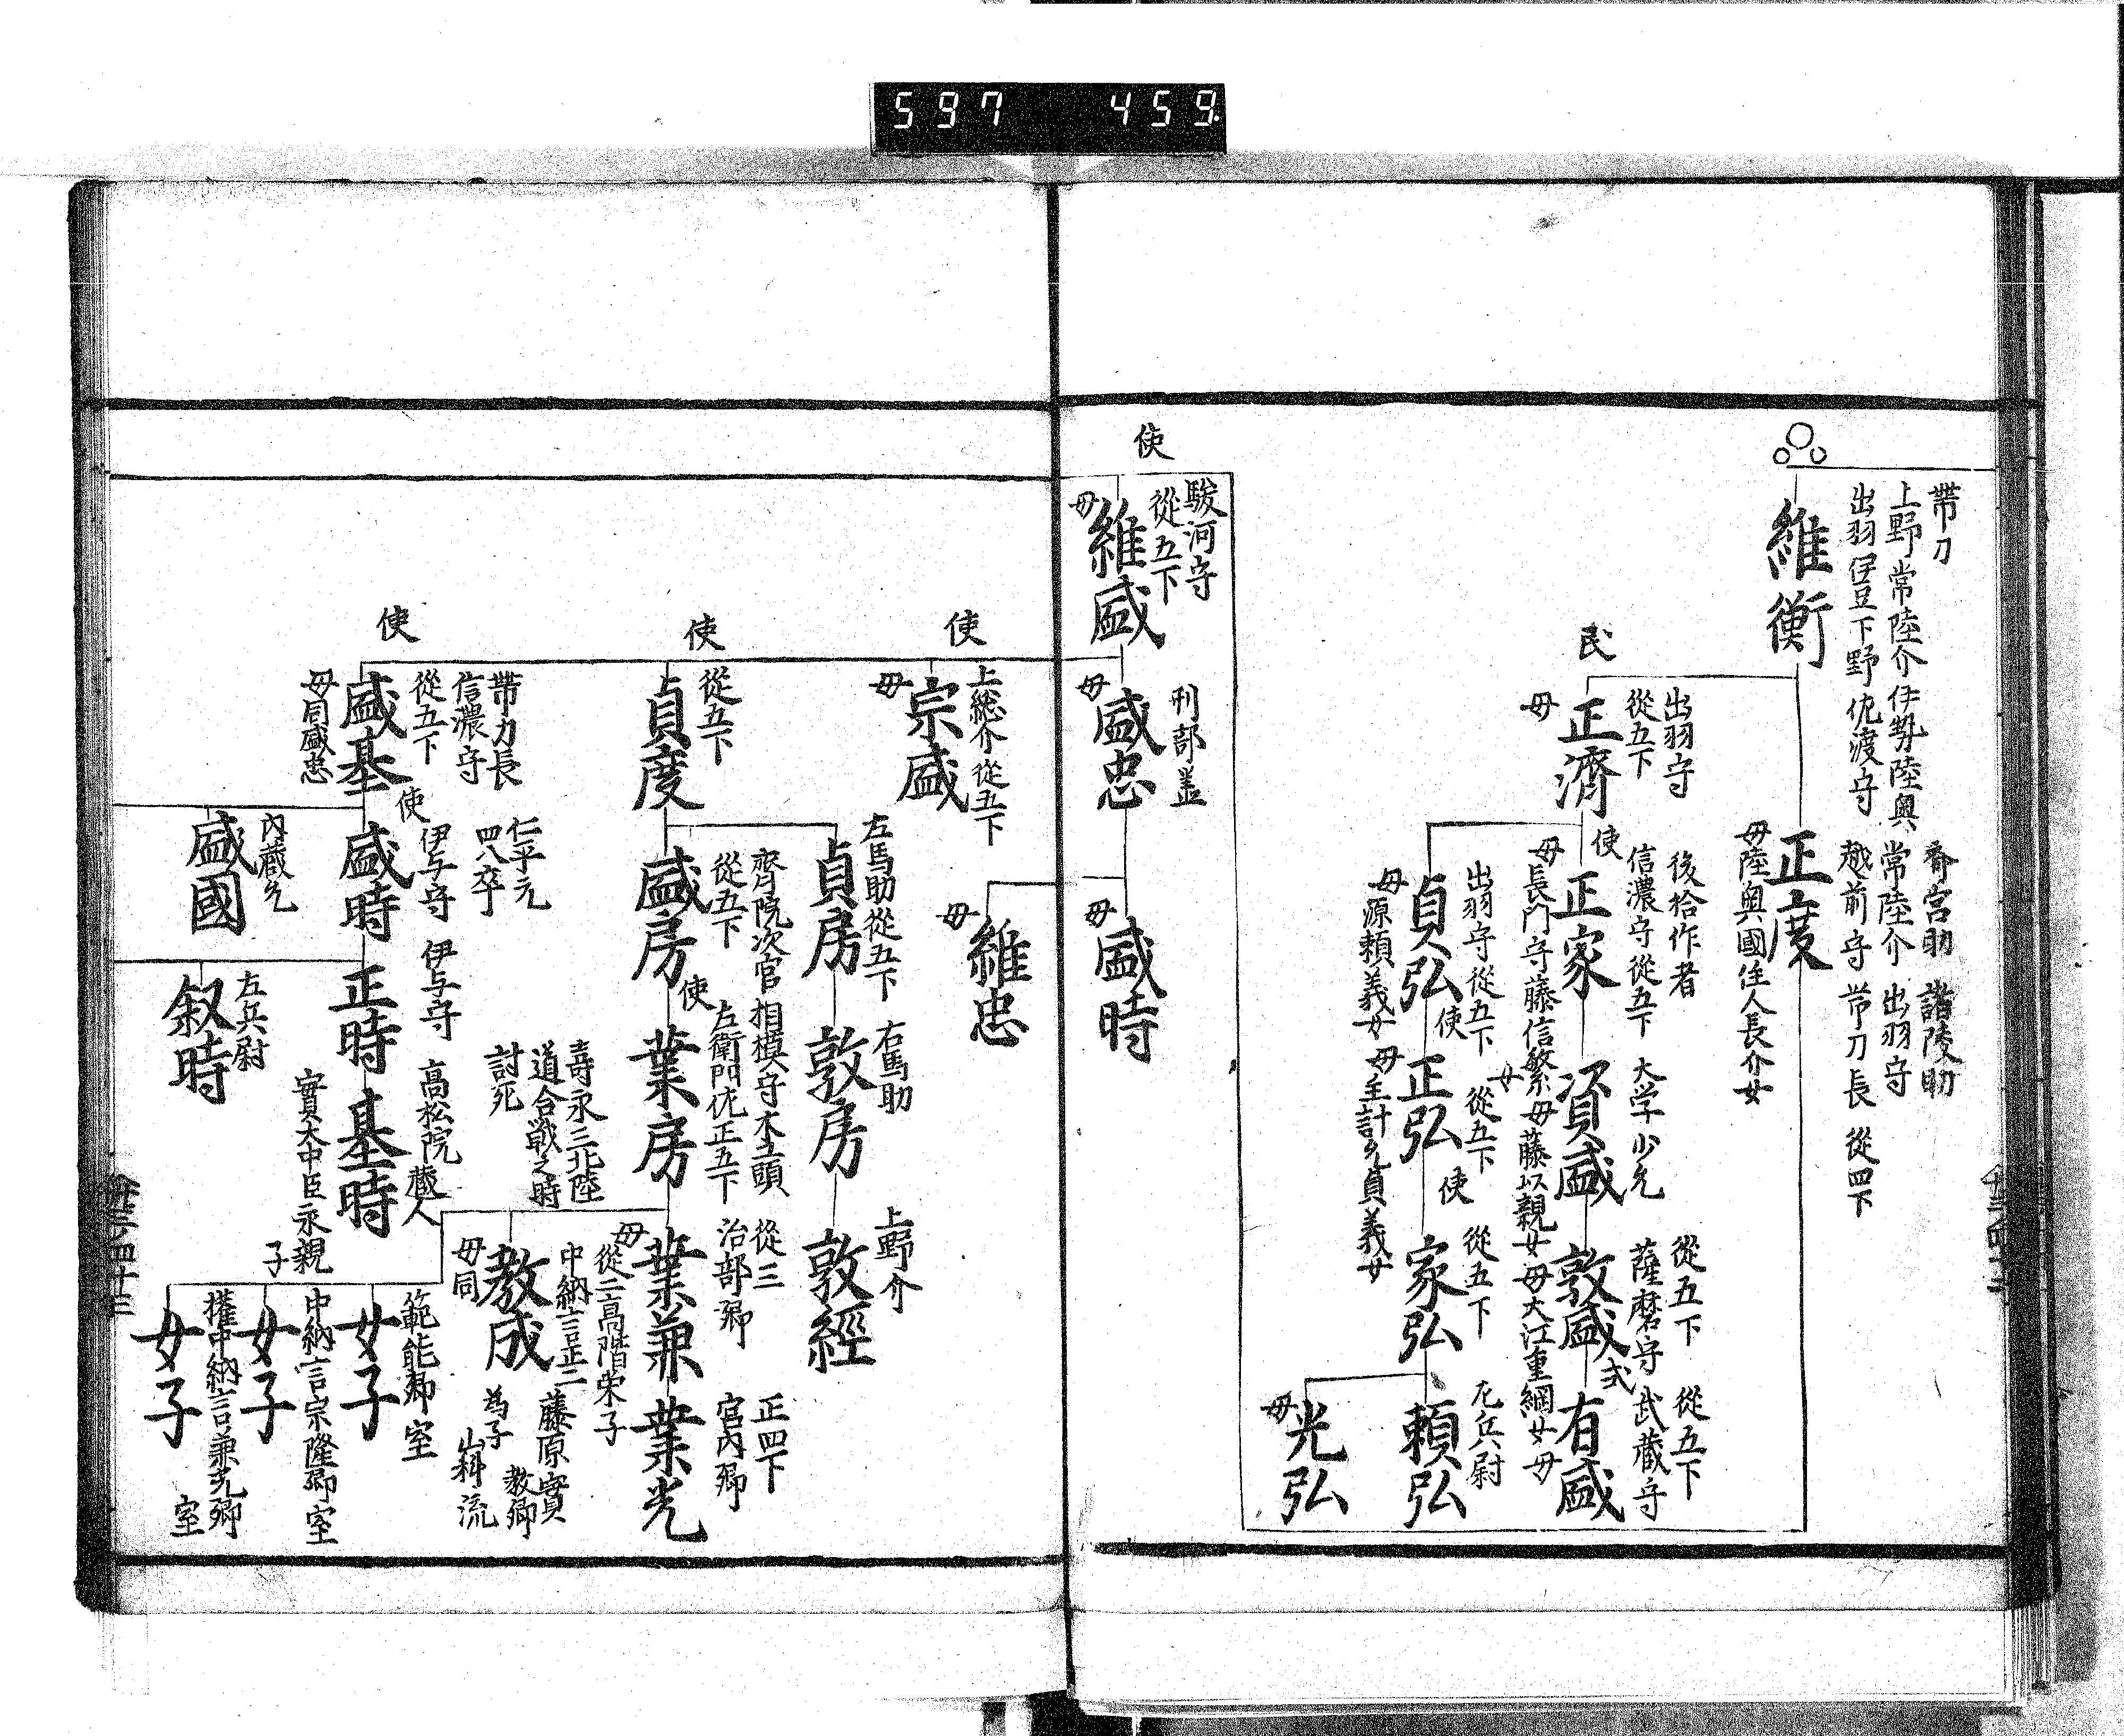 597 459
帶刀
上野常陸介伊勢陸奥
出羽伊豆下野佐渡守
維衡
齊宮助 諸陵助
常陸介 出羽守
越前守 帯刀長 從四下
正度
母陸奥國住人長介女
民
出羽守
從五下
正濟
母
後拾作者
信濃守從五下
使
正家
母長門守藤信繁女
大学少允
資盛
母藤以親女
從五下
薩磨守
敦盛
母大江重綱女
從五下
武蔵守
式
有盛
母
出羽守從五下
貞弘
母源頼義女
從五下
使
正弘
母主計允貞義女
從五下
使
家弘
左兵尉
頼弘
光弘
母
使
駿河守
從五下
維盛
母
刑部丞
盛忠
母
盛時
母
維忠
母
使
上総介從五下
宗盛
母
使
從五下
貞度
左馬助從五下
貞房
右馬助
敦房
上野介
敦經
齊院次官
從五下
盛房
相模守木工頭
左衛門佐正五下
使
業房
壽永三北陸
道合戦之時
討死
從三
治部卿
業兼
母從二高階栄子
正四下
宮内卿
業光
中納言正二
教成
母同
藤原實
教卿
為子
山科流
使
帶刀長
信濃守
從五下
盛基
母同盛忠
仁平元
四八卒
伊与守
使
盛時
伊与守
正時
高松院
蔵人
基時
實大中臣永親
子
範能卿室
女子
中納言宗隆卿室
女子
權中納言兼光卿
室
女子
内蔵允
盛國
左兵尉
叙時